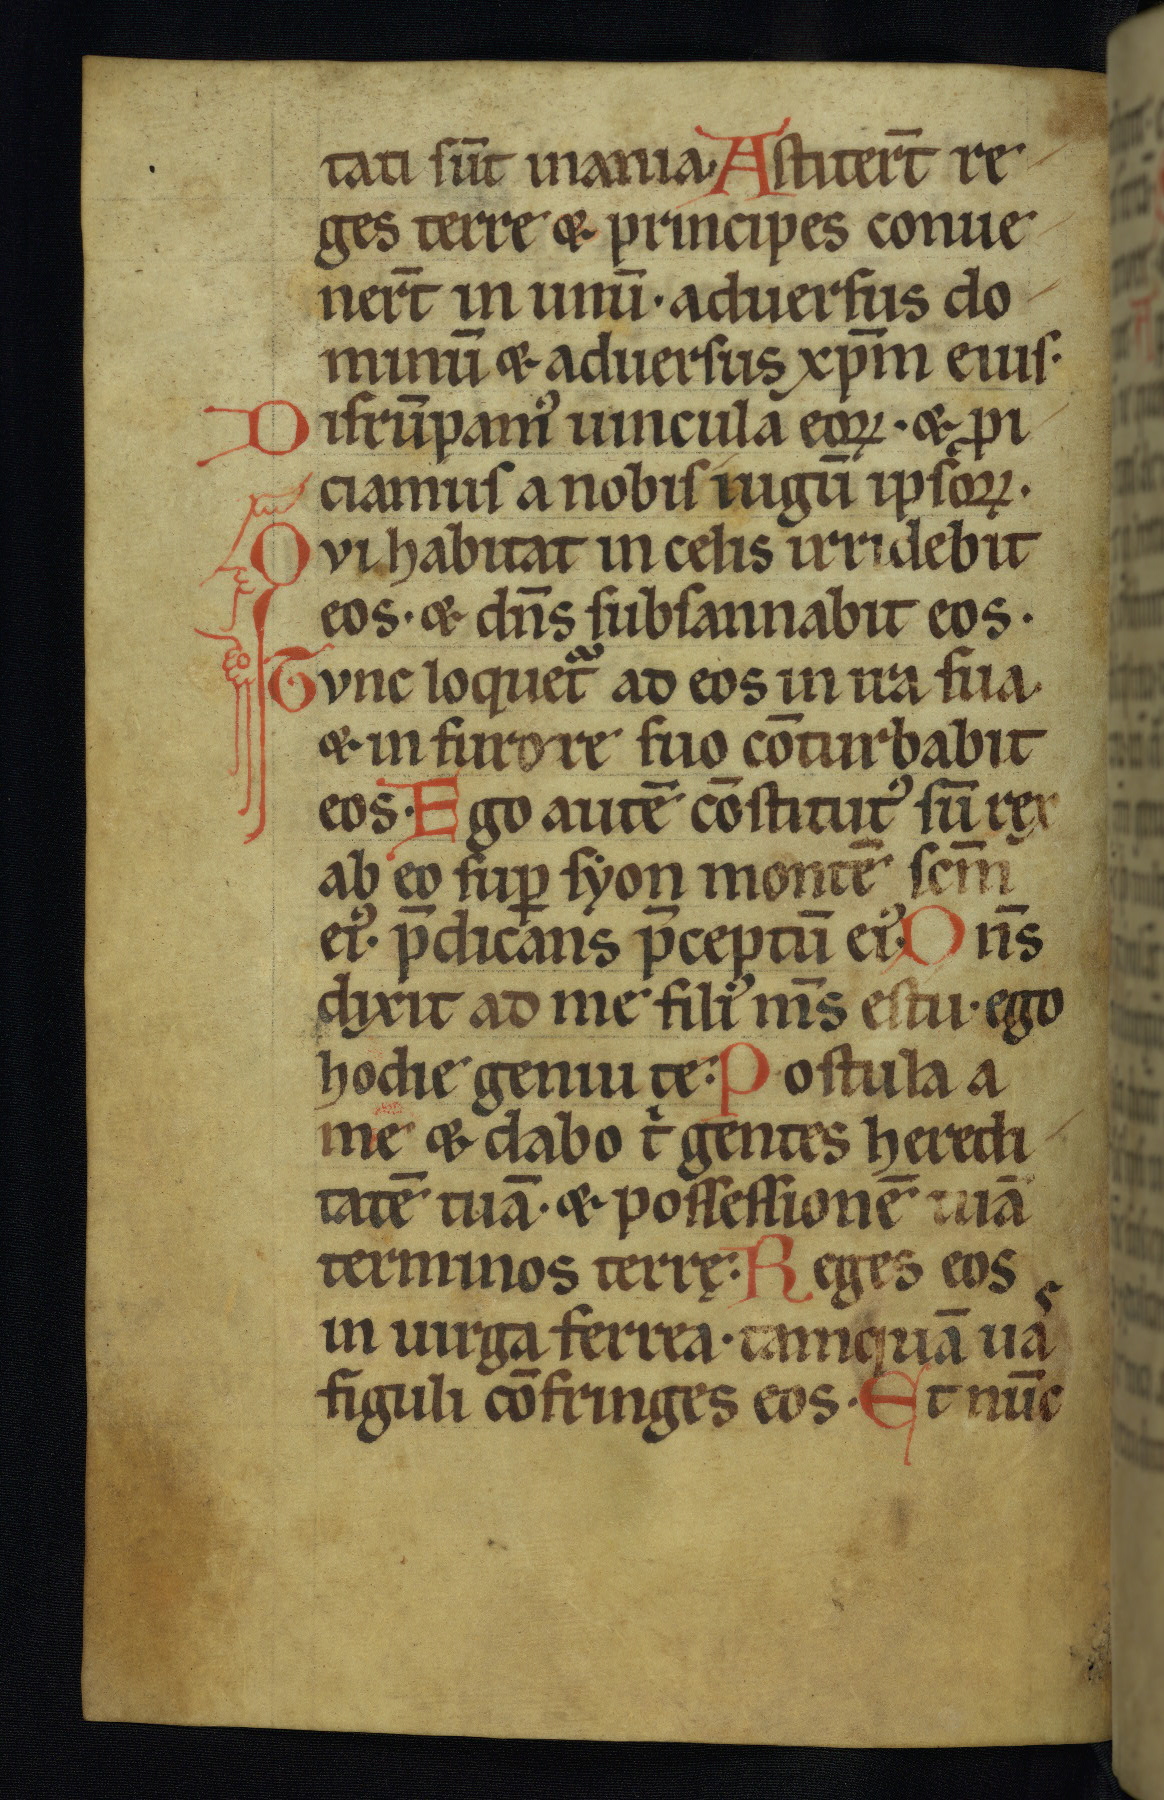 tati sūt inania. Astitert̄ re
ges terre & principes conue
nert̄ in unū · aduersus do
minū & aduersus xp̄m eius·
Disrūpamꝰ uincula eoꝝ · & ꝓi
ciamus a nobis iugū ipsoꝝ·
Qvi habitat in celis irridebit
eos · & dn̄s subsannabit eos ·
Tvnc loquet᷑ ad eos in ira sua
& in furore suo cōturbabit
eos · Ego autē cōstitutꝰ sū rex
ab eo suꝑ syon montē scm̄
eiꝰ· p̄dicans p̄ceptū eiꝰ. Dn̄s
dixit ad me filiꝰ m̄s es tu · ego
hodie genui te : Postula a
me & dabo tͥ gentes heredi
tatē tuā · & possessionē tuā
terminos terrę : Reges eos
in uirga ferrea · tamquā uas
figuli cōfringes eos · Et nūc